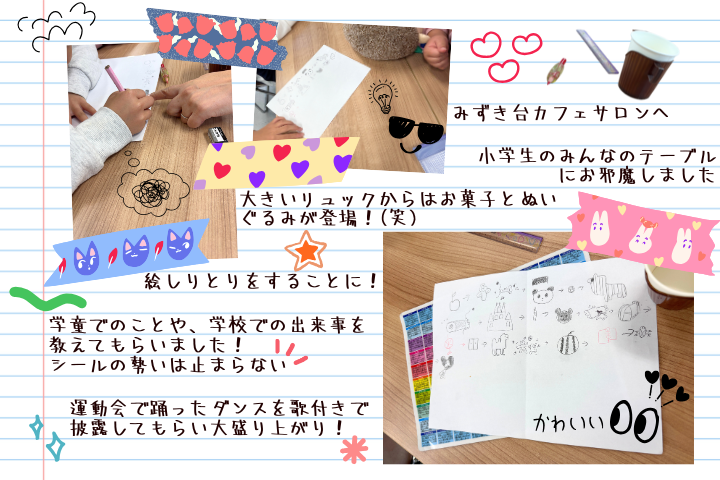 みずき台カフェサロンへ
小学生のみんなのテーブル
にお邪魔しました
大きいリュックからはお菓子とぬい
ぐるみが登場！(笑)
絵しりとりをすることに！
学童でのことや、学校での出来事を
教えてもらいました！
シールの勢いは止まらない
運動会で踊ったダンスを歌付きで
披露してもらい大盛り上がり！
かわいい